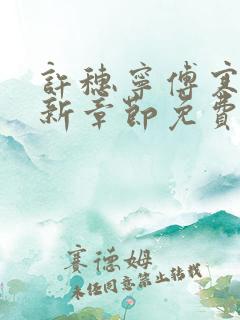 許穗寧傅寒
新章節免費
賽德姆
未經同意禁止轉載